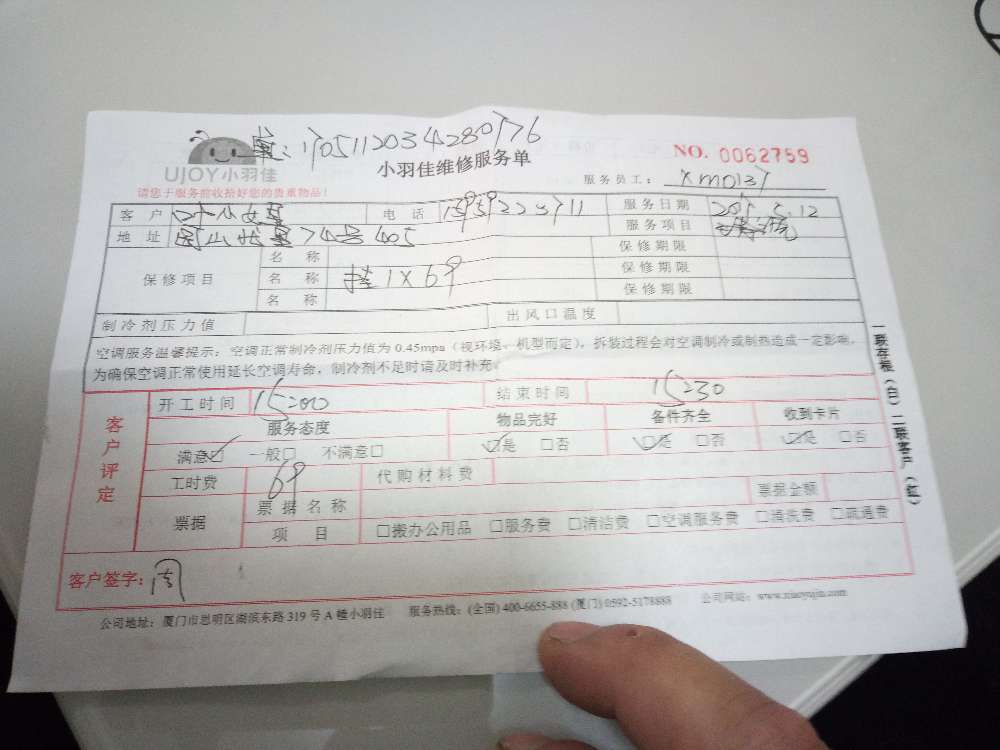 单：170511203428077​6
UJOY小羽佳
小羽佳维修服务单
NO. 0062759
请您于服务前收拾好您的贵重物品！
服务员工： XM0137
客 户 电 话 服务日期 5.12
地 址 74号405 服务项目
保修项目 名 称 保修期限
名 称 挂1X69 保修期限
名 称 保修期限
制冷剂压力值 出风口温度
空调服务温馨提示：空调正常制冷剂压力值为0.45mpa（视环境、机型而定），拆装过程会对空调制冷或制热造成一定影响，
为确保空调正常使用延长空调寿命，制冷剂不足时请及时补充。
客户评定
开工时间 15:00 结束时间 15:30
服务态度 物品完好 备件齐全 收到卡片
满意☑ 一般□ 不满意□ ☑是 □否 ☑是 □否 ☑是 □否
工时费 69 代购材料费
票据 票据名称 票据金额
项 目 □搬办公用品 □服务费 □清洁费 □空调服务费 □清洗费 □疏通费
客户签字：周
公司地址：厦门市思明区湖滨东路319号A幢小羽佳 服务热线：(全国) 400-6655-888 (厦门) 0592-5178888 公司网站：www.xiaoyujia.com
一联存根（白）二联客户（红）